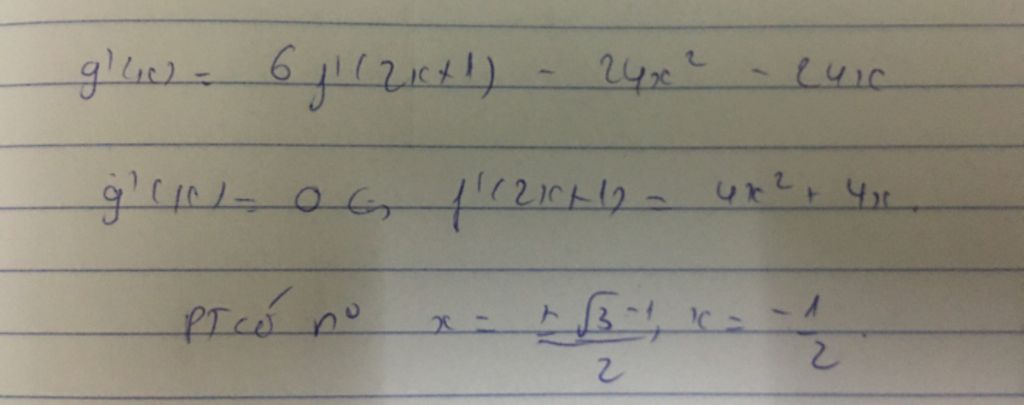 g'(x) = 6 f'(2x+1) - 24x² - 24x
g'(x) = 0 ⇔ f'(2x+1) = 4x² + 4x.
PT có n⁰ x = (±√3 -1)/2, x = -1/2.